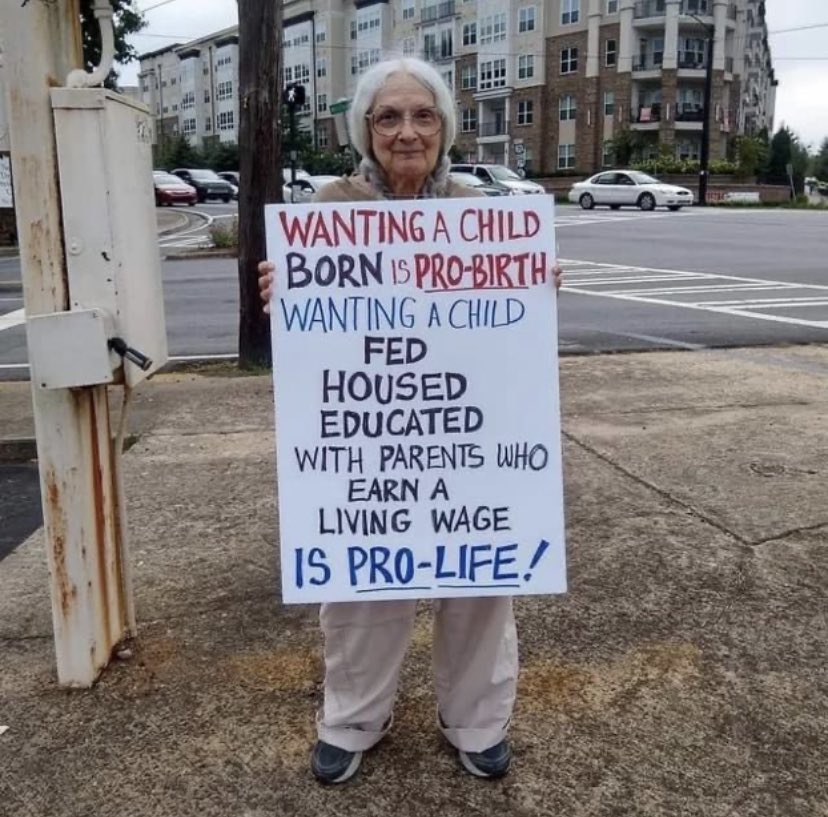 WANTING A CHILD
BORN IS PRO-BIRTH
WANTING A CHILD
FED
HOUSED
EDUCATED
WITH PARENTS WHO
EARN A
LIVING WAGE
IS PRO-LIFE!